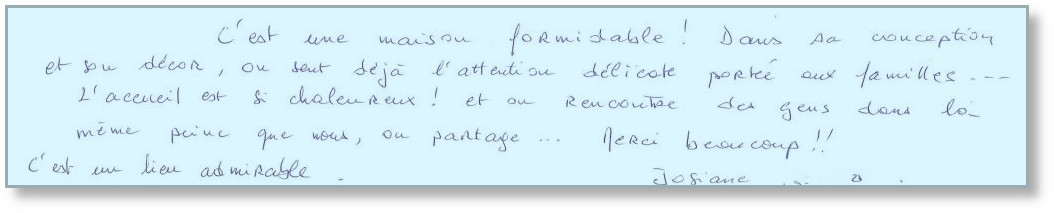 C'est une maison formidable ! Dans sa conception
et son décor, on sent déjà l'attention délicate portée aux familles ---
L'accueil est si chaleureux ! et on rencontre des gens dans la
même peine que nous, on partage ... Merci beaucoup !!
C'est un lieu admirable .
Josiane